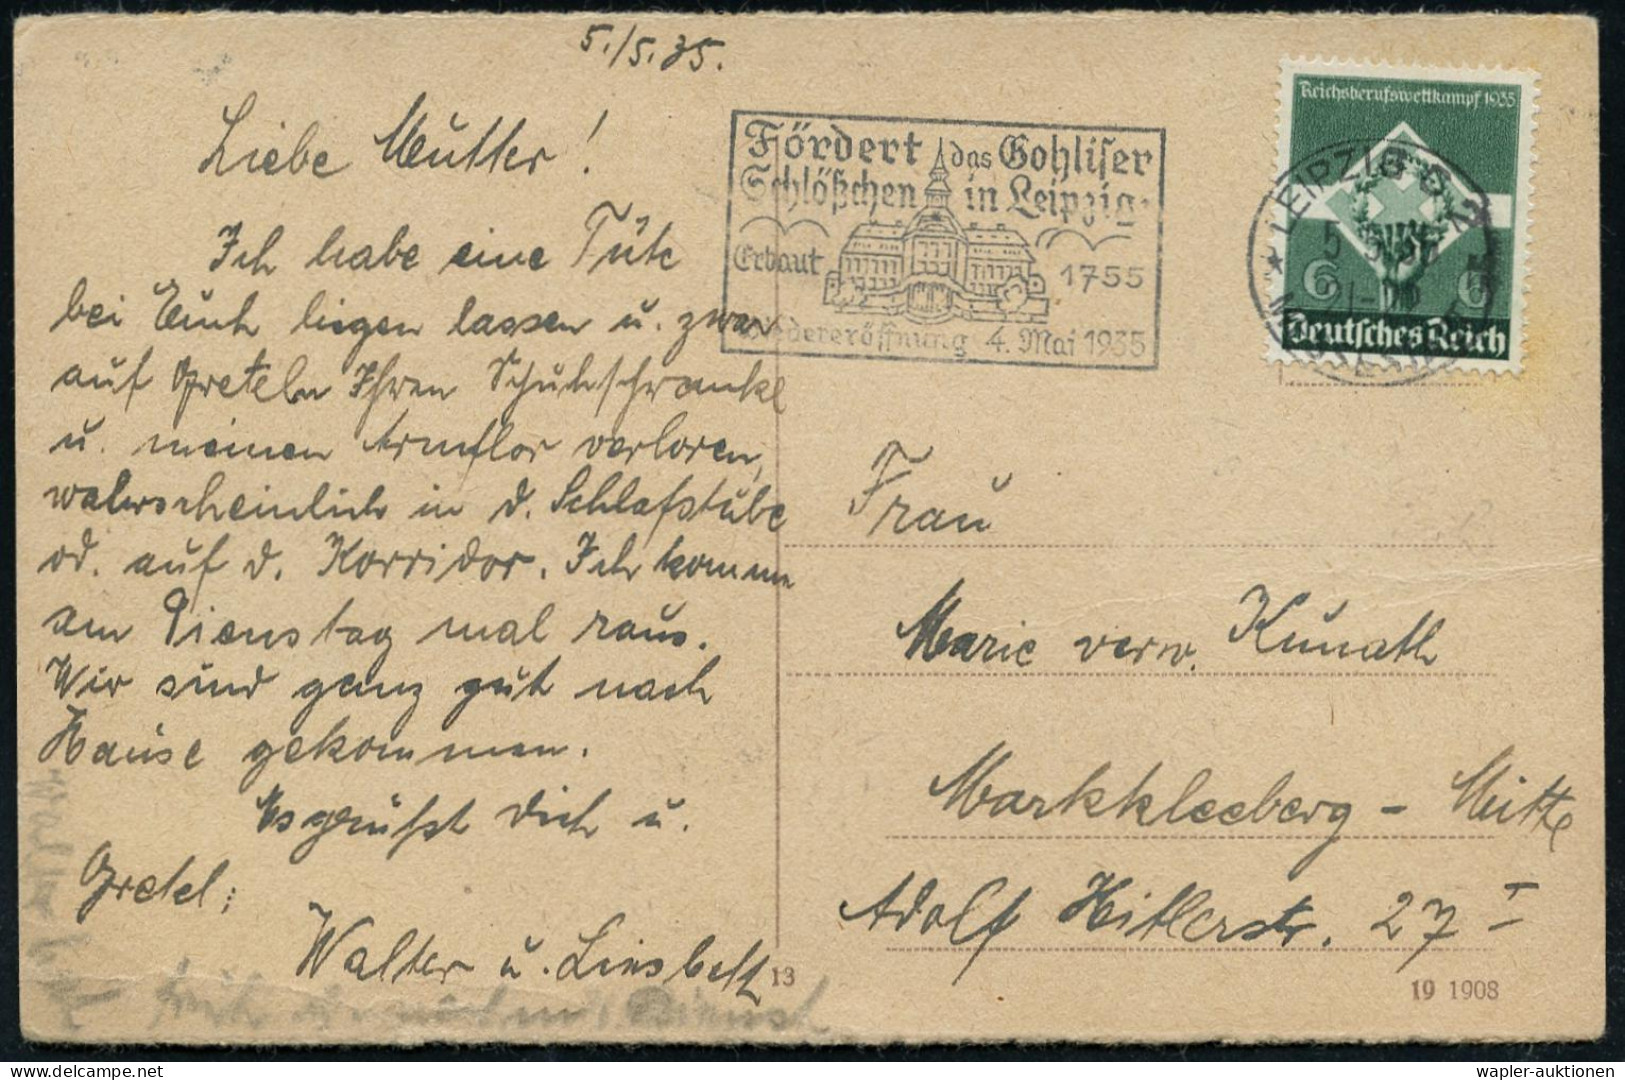 5./5.35.
Liebe Mutter!
Ich habe eine Tüte
bei Euch liegen lassen u. zwar
auf Greteln Ihren Schuhschrankl
u. meinen Armflor verloren,
wahrscheinlich in d. Schlafstube
od. auf d. Korridor. Ich komme
am Dienstag mal raus.
Wir sind ganz gut nach
Hause gekommen.
Es grüßt Dich u.
Gretel;
Walter u. Liesbeth
Fördert das Gohliser
Schlößchen in Leipzig
Erbaut 1755
Wiedereröffnung 4. Mai 1935
Reichsberufswettkampf 1935
6 6
Deutsches Reich
LEIPZIG C 2
Frau
Marie verw. Kunath
Markkleeberg - Mitte
Adolf Hitlerstr. 27 I
13
19 1908
wapler-auktionen